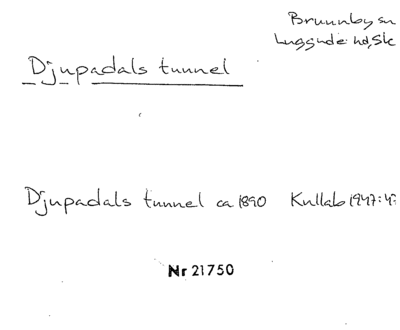 Brunnby sn
Luggude hd, Sk
Djupadals tunnel
Djupadals tunnel ca 1890 Kullab 1947:47
Nr 21750